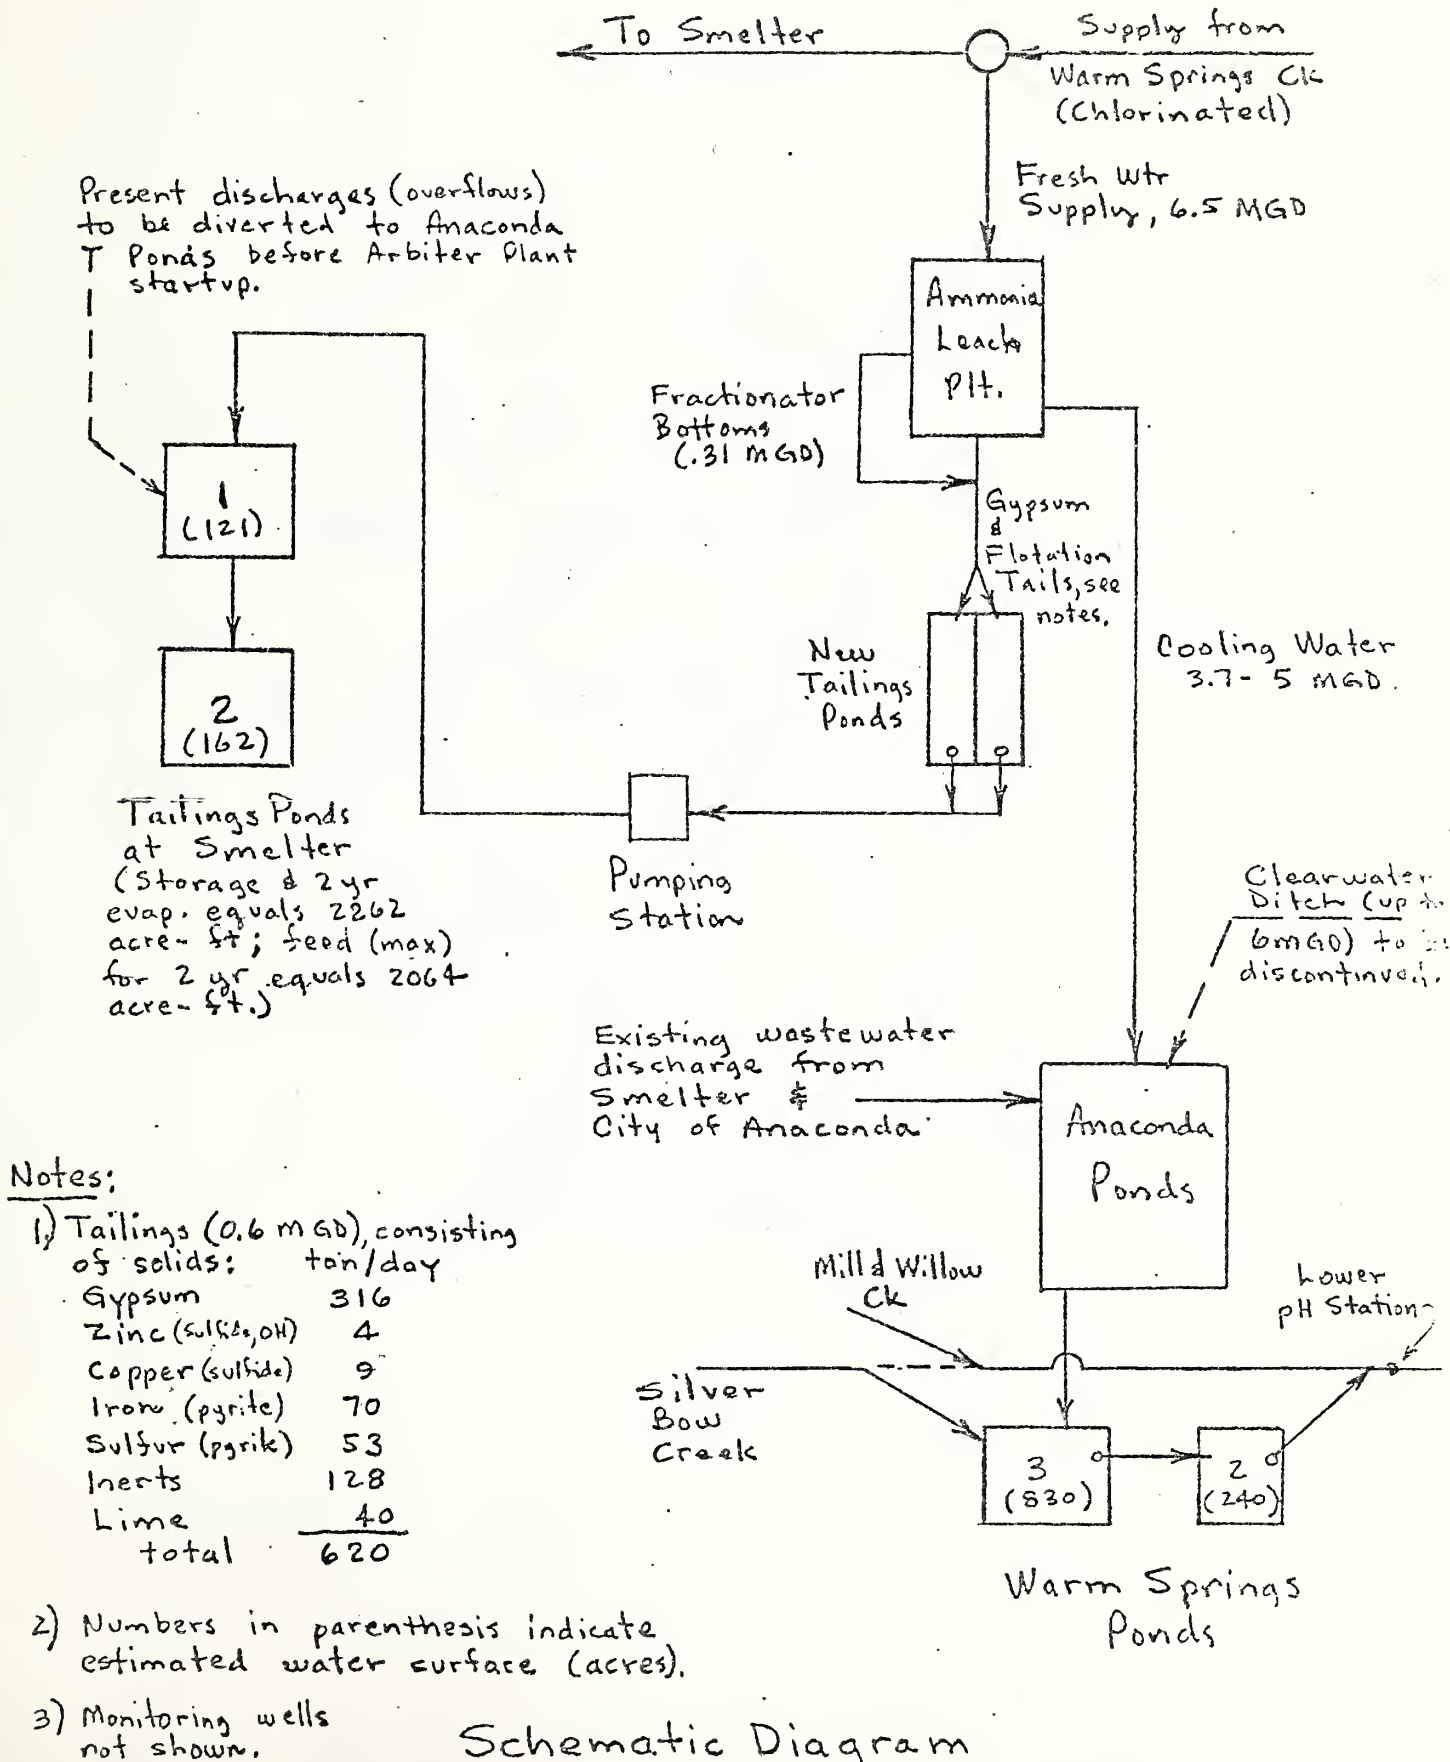 To Smelter
Supply from
Warm Springs Ck
(Chlorinated)
Fresh Wtr
Supply, 6.5 MGD
Present discharges (overflows)
to be diverted to Anaconda
Ponds before Arbiter Plant
startup.
Ammonia
Leach
Plt.
Fractionator
Bottoms
(.31 MGD)
1
(121)
Gypsum
&
Flotation
Tails, see
notes.
2
(162)
New
Tailings
Ponds
Cooling Water
3.7 - 5 MGD.
Tailings Ponds
at Smelter
(Storage & 2 yr
evap. equals 2262
acre-ft; feed (max)
for 2 yr equals 2064
acre-ft.)
Pumping
Station
Clearwater
Ditch (up to
6MGD) to
discontinued.
Existing wastewater
discharge from
Smelter &
City of Anaconda
Anaconda
Ponds
Notes:
1) Tailings (0.6 MGD), consisting
of solids: ton/day
Gypsum 316
Zinc (sulfide, OH) 4
Copper (sulfide) 9
Iron (pyrite) 70
Sulfur (pyrite) 53
Inerts 128
Lime 40
total 620
Mill & Willow
Ck
Lower
pH Station
Silver
Bow
Creek
3
(830)
2
(240)
Warm Springs
Ponds
2) Numbers in parenthesis indicate
estimated water surface (acres).
3) Monitoring wells
not shown.
Schematic Diagram